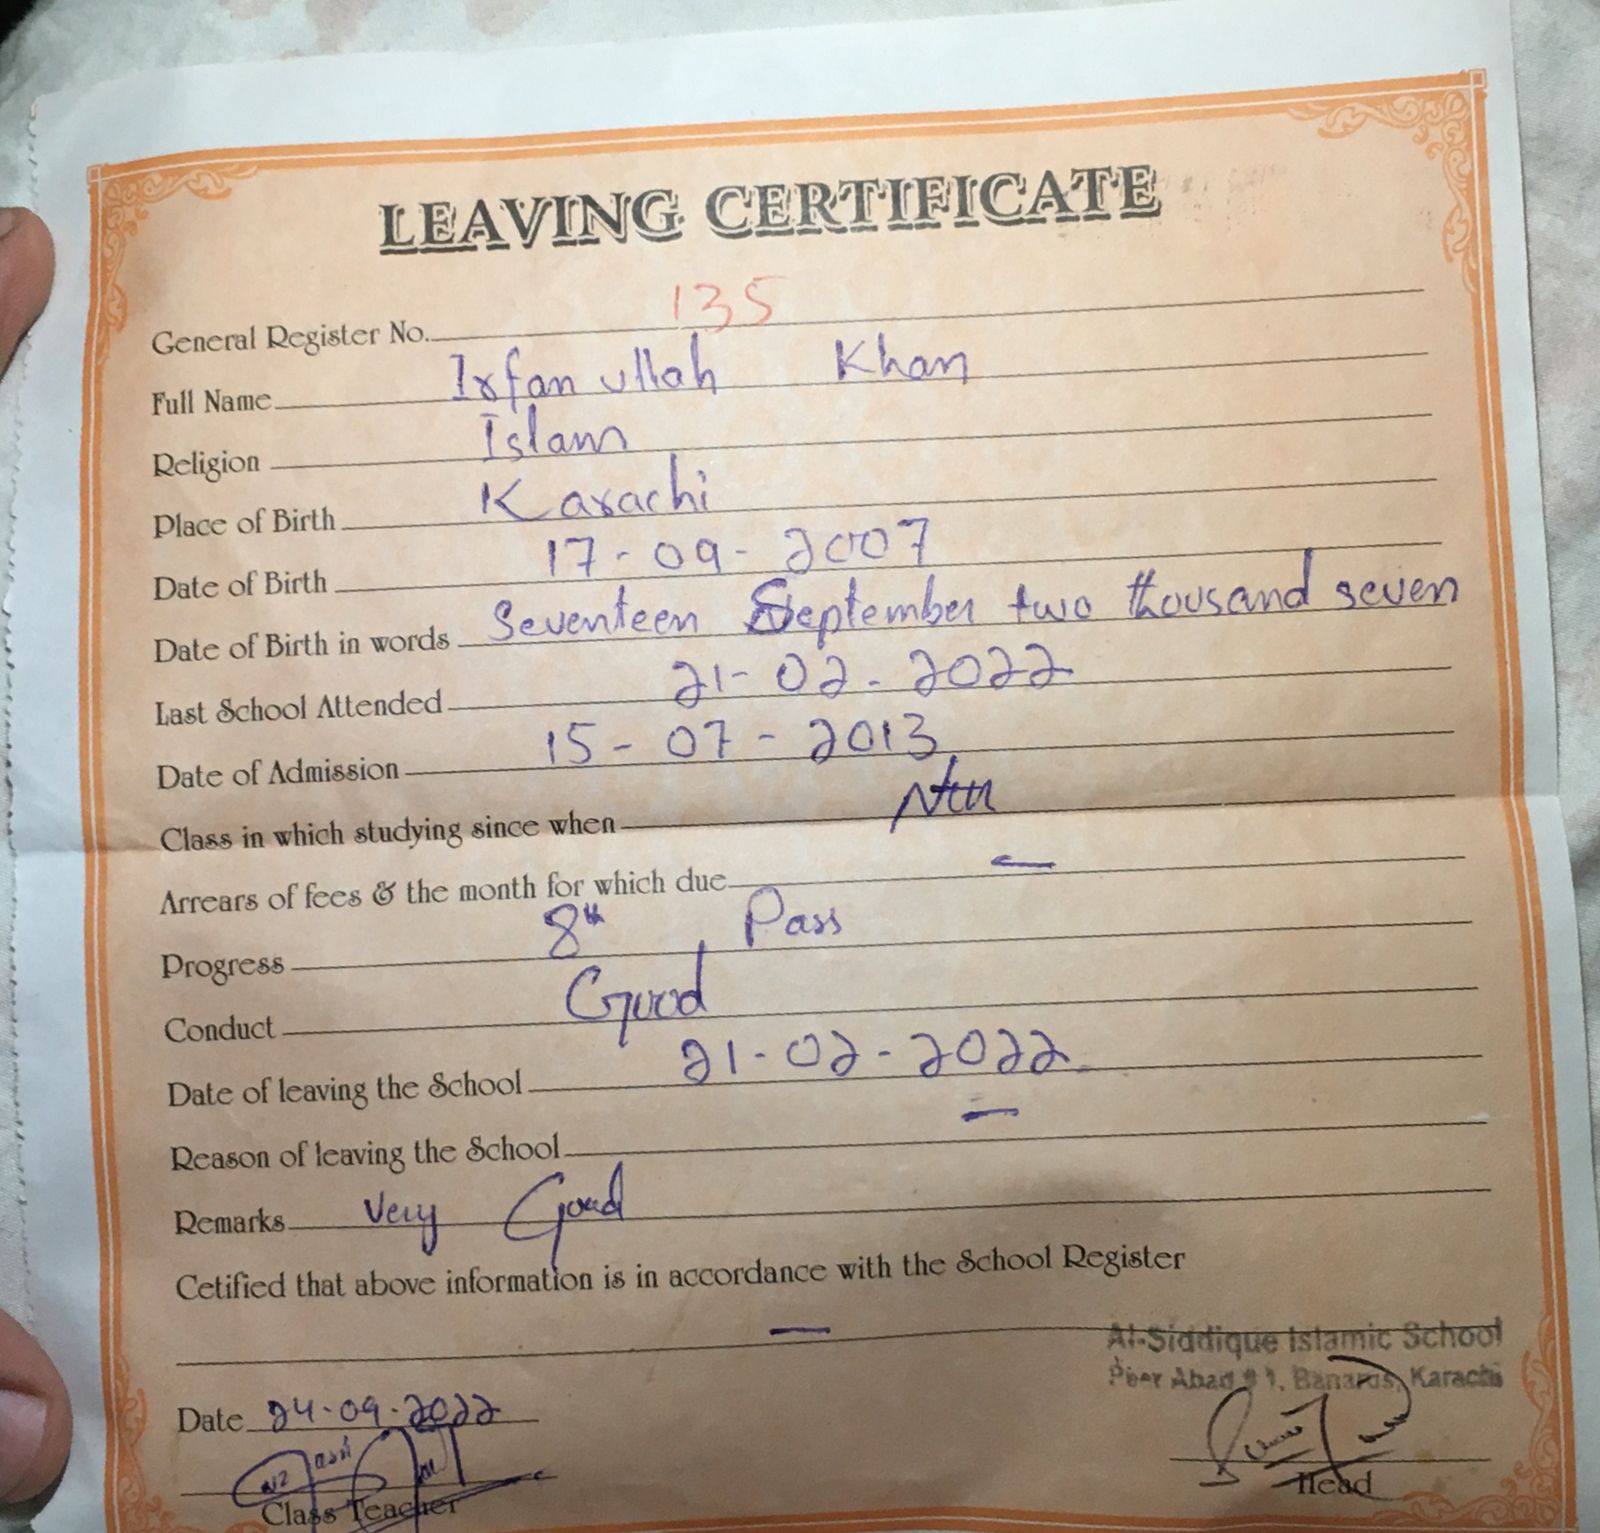 LEAVING CERTIFICATE
General Register No. 135
Full Name Irfan ullah Khan
Religion Islam
Place of Birth Karachi
Date of Birth 17-09-2007
Date of Birth in words Seventeen September two thousand seven
Last School Attended 21-02-2022
Date of Admission 15-07-2013
Class in which studying since when
Arrears of fees & the month for which due —
Progress 8th Pass
Conduct Good
Date of leaving the School 21-02-2022
Reason of leaving the School —
Remarks Very Good
Cetified that above information is in accordance with the School Register
—
Al-Siddique Islamic School
Abad # 1, Banaras, Karachi
Date 24-09-2022
Class Teacher
Head